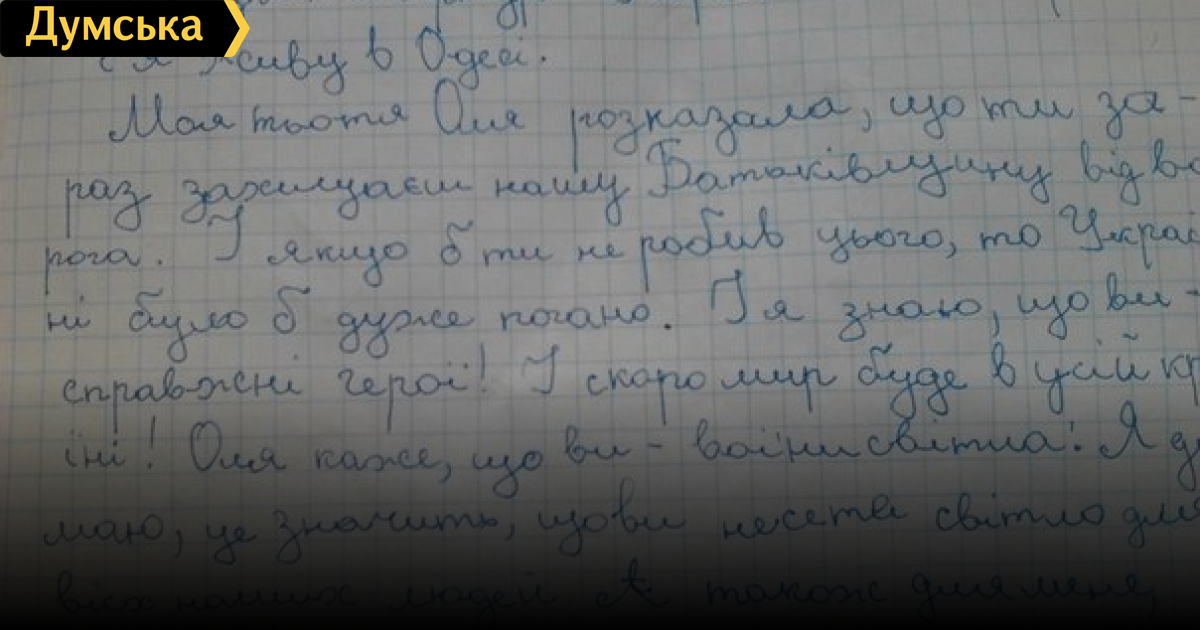 Думська
і я живу в Одесі.
Моя тьотя Оля розказала, що ти за-
раз захищаєш нашу Батьківщину від во
рога. І якщо б ти не робив цього, то Украї
ні було б дуже погано. І я знаю, що ви -
справжні герої! І скоро мир буде в усій кр
їні! Оля каже, що ви - воїни світла! Я ду
маю, це значить, що ви несете світло для
всіх наших людей А також для мене,